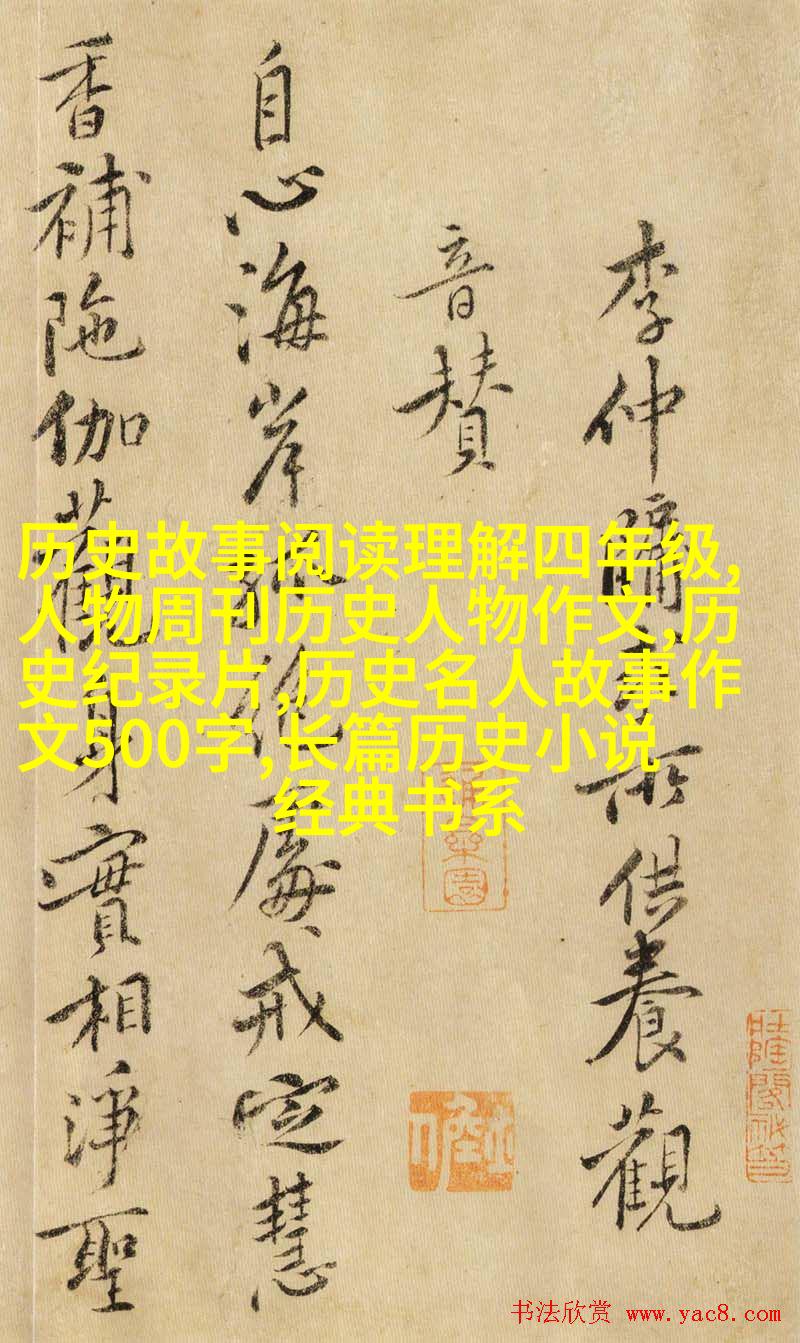 李仲牗中所供養觀
音賛
自心海岸孤絶處戒定慧
香補陁伽觀身實相淨聖
历史故事阅读理解四年级,
人物周刊历史人物作文,历
史纪录片,历史名人故事作
文500字,长篇历史小说
经典书系
书法欣赏 www.yac8.com